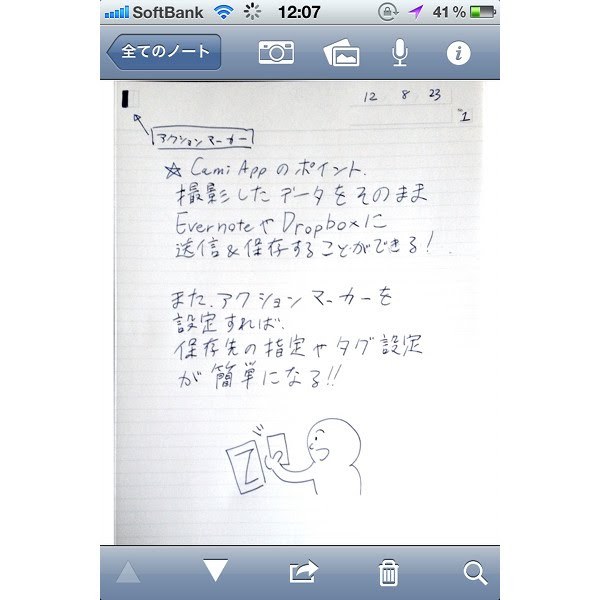 SoftBank 12:07 41%
全てのノート
12 8 23
1
アクションマーカー
☆ CamiAppのポイント.
撮影したデータをそのまま
EvernoteやDropboxに
送信&保存することができる!
また、アクションマーカーを
設定すれば、
保存先の指定やタグ設定
が簡単になる!!